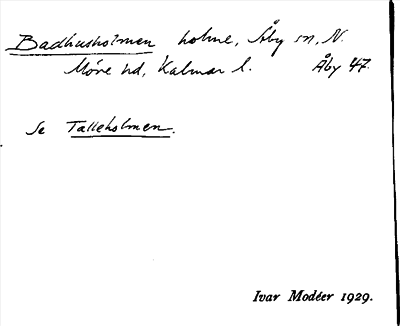 Badhusholmen holme, Åby sn, N.
Möre hd, Kalmar l. Åby 47.
Se Talleholmen.
Ivar Modéer 1929.